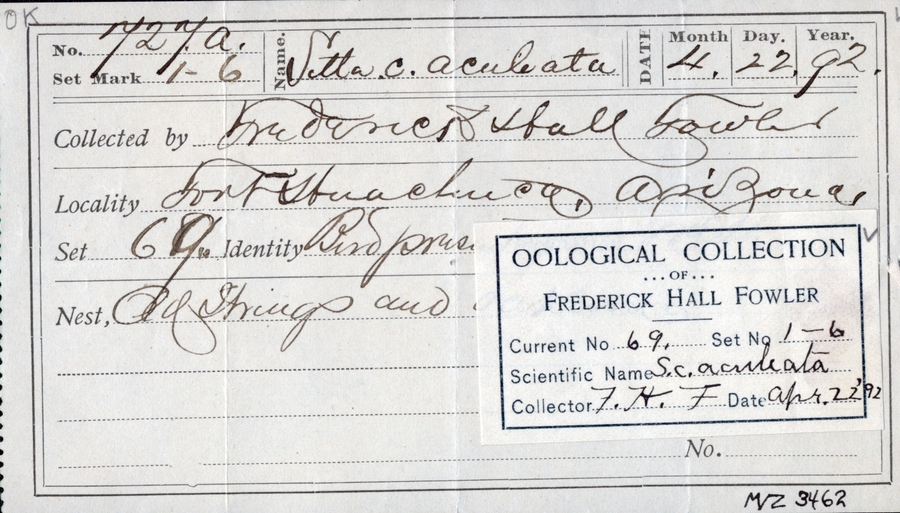 OK
No. 727.a. Name. Sitta. c. aculeata DATE Month Day. Year.
Set Mark 1-6 4. 22. 92.
Collected by Frederick Hall Fowler
Locality Fort Huachuca, Arizona,
Set 69 Identity Bird
Nest, Old Strings and
OOLOGICAL COLLECTION
...OF...
FREDERICK HALL FOWLER
Current No 69. Set No 1-6
Scientific Name S.c. aculeata
Collector F. H. F Date Apr. 22 '92
No.
MVZ 3462